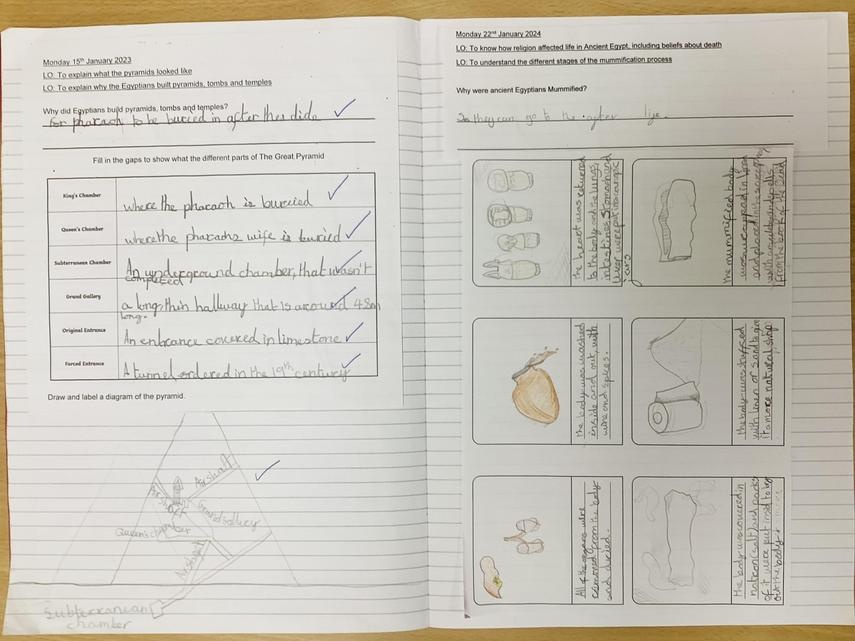 Monday 15th January 2023
LO: To explain what the pyramids looked like
LO: To explain why the Egyptians built pyramids, tombs and temples
Why did Egyptians build pyramids, tombs and temples?
for pharaoh to be buried in after they
Fill in the gaps to show what the different parts of The Great Pyramid
King's Chamber
where the pharaoh is burried
Queen's Chamber
where the pharaohs wife is buried
Subterranean Chamber
An underground chamber, that wasn't
completed
Grand Gallery
a long, thin hallway that is around 48m
long.
Original Entrance
An entrance covered in limestone
Forced Entrance
A tunnel ordered in the 19th century
Draw and label a diagram of the pyramid.
Airshaft
Airshaft
Grand gallery
Queens chamber
Airshaft
Subterranean
chamber
Monday 22nd January 2024
LO: To know how religion affected life in Ancient Egypt, including beliefs about death
LO: To understand the different stages of the mummification process
Why were ancient Egyptians Mummified?
So they can go to the after life.
the heart was returned
to the body and the lungs,
intestines, stomach and
liver were put into canopic
jars
the mummified body
was wrapped in linen
and placed in the
with and
from the book of the dead
the body was washed
inside and out, with
wine and spices.
the body was stuffed
with linen or sand to give
it a more natural shape
All of the organs were
removed from the body
and dried.
the body was covered in
natron (salt) and packs
of it were put insid to
out the body